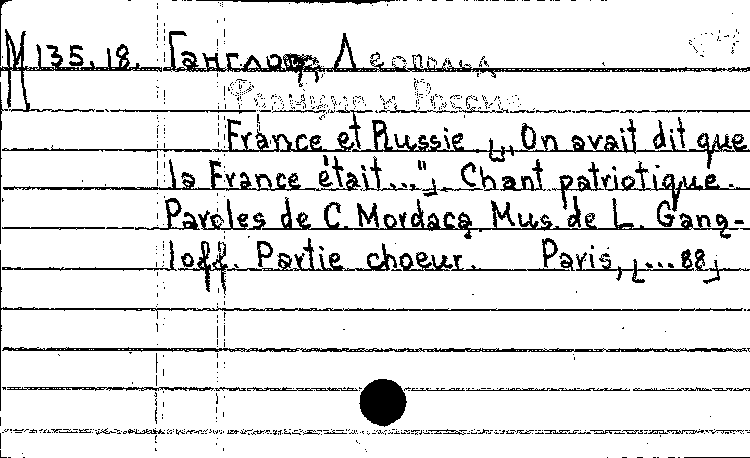 М 135.18. Ганглофф, Леопольд
Франция и Россия
France et Russie. [„On avait dit que
la France était..."]. Chant patriotique.
Paroles de C. Mordacq. Mus. de L. Gang-
loff. Partie choeur. Paris, [...88]